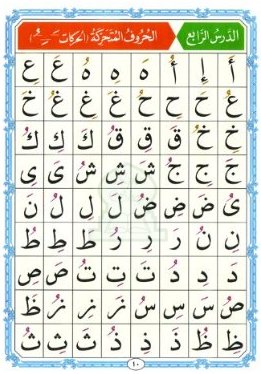 الدَّرْسُ الرَّابِعُ
الحُرُوفُ المُتَحَرِّكَةُ (حركات ـَ ـِ ـُ)
أَ إِ أُ هَ هِ هُ عَ عِ
عُ حَ حِ حُ غَ غِ غُ خَ
خِ خُ قَ قِ قُ كَ كِ كُ
جَ جِ جُ شَ شِ شُ ىَ ىِ
ىُ ضَ ضِ ضُ لَ لِ لُ نَ
نِ نُ رَ رِ رُ طَ طِ طُ
دَ دِ دُ تَ تِ تُ صَ صِ
صُ سَ سِ سُ زَ زِ زُ ظَ
ظِ ظُ ذَ ذِ ذُ ثَ ثِ ثُ
١٠